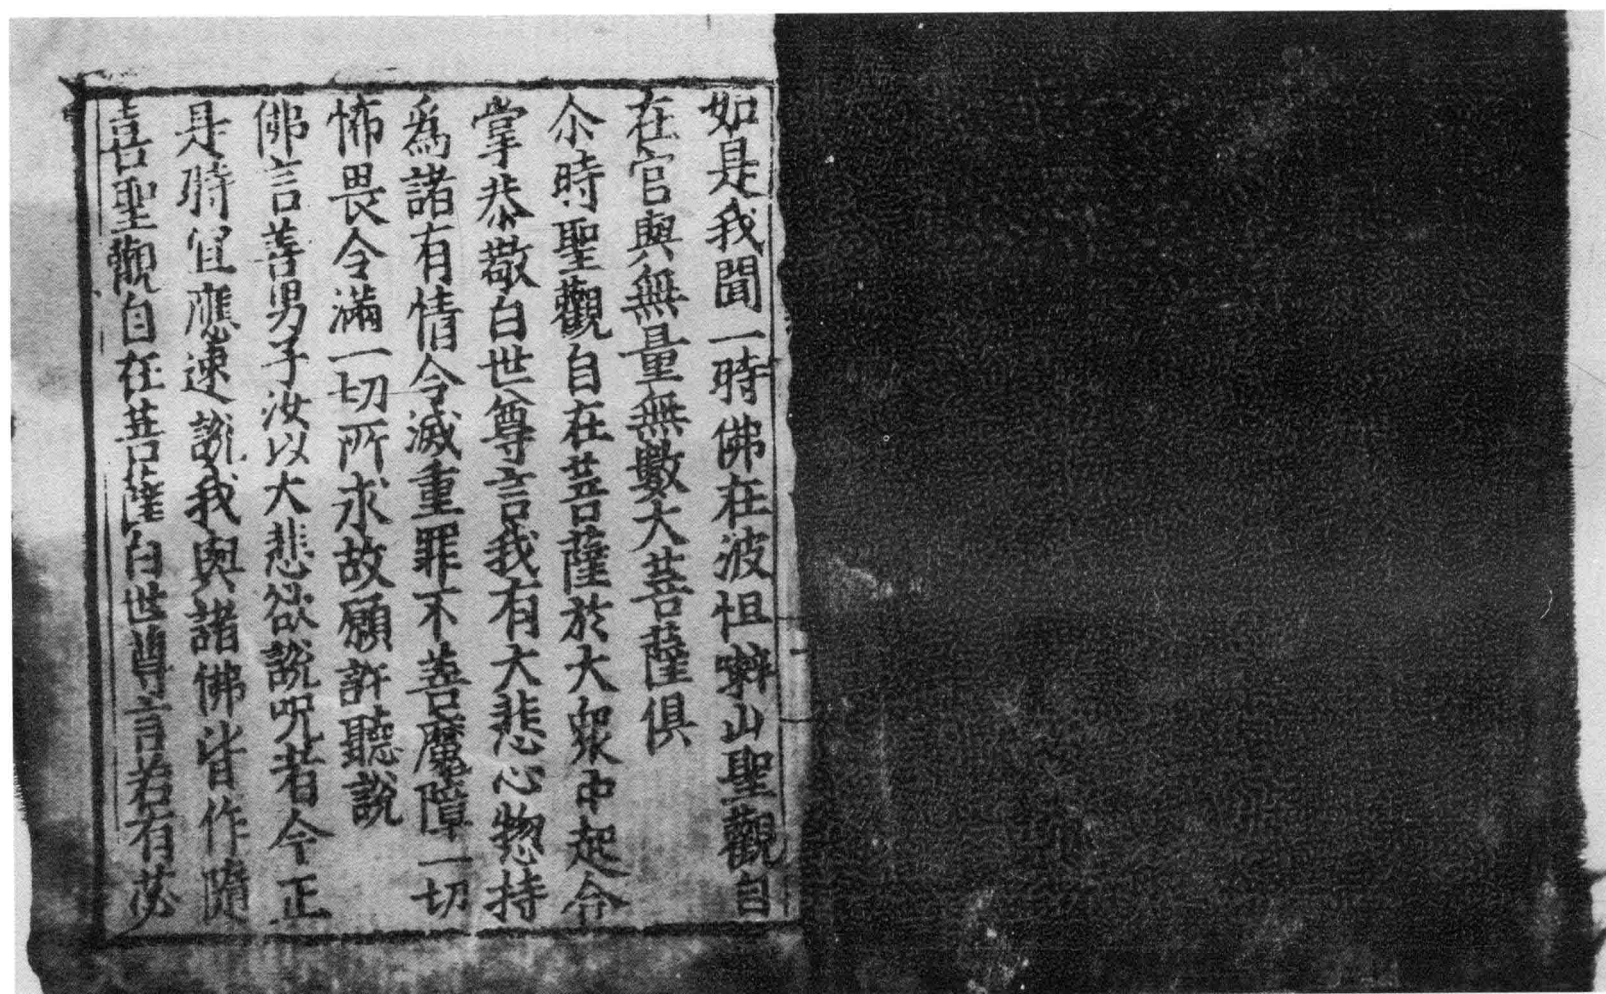 如是我聞一時佛在波怛嚩山聖觀自
在宮與無量無數大菩薩俱
尒時聖觀自在菩薩於大衆中起合
掌恭敬白世尊言我有大悲心惣持
爲諸有情令滅重罪不善魔障一切
怖畏令滿一切所求故願許聽說
佛言善男子汝以大悲欲說呪者今正
是時宜應速說我與諸佛皆作隨
喜聖觀自在菩薩白世尊言若有苾